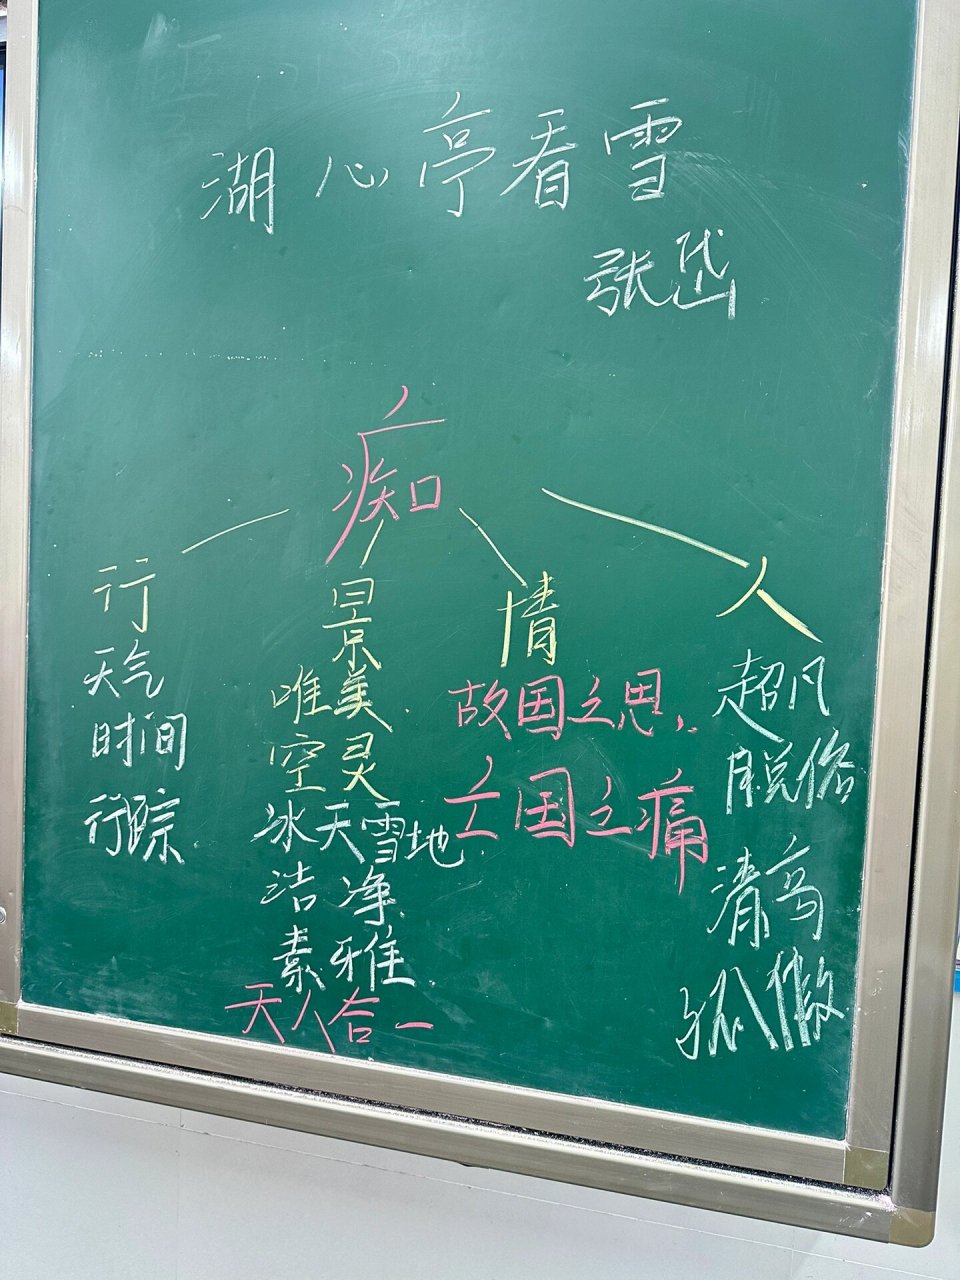 湖心亭看雪
张岱
痴
行
天气
时间
行踪
景
唯美
空灵
冰天雪地
洁净
素雅
天人合一
情
故国之思,
亡国之痛
人
超凡
脱俗
清高
孤傲